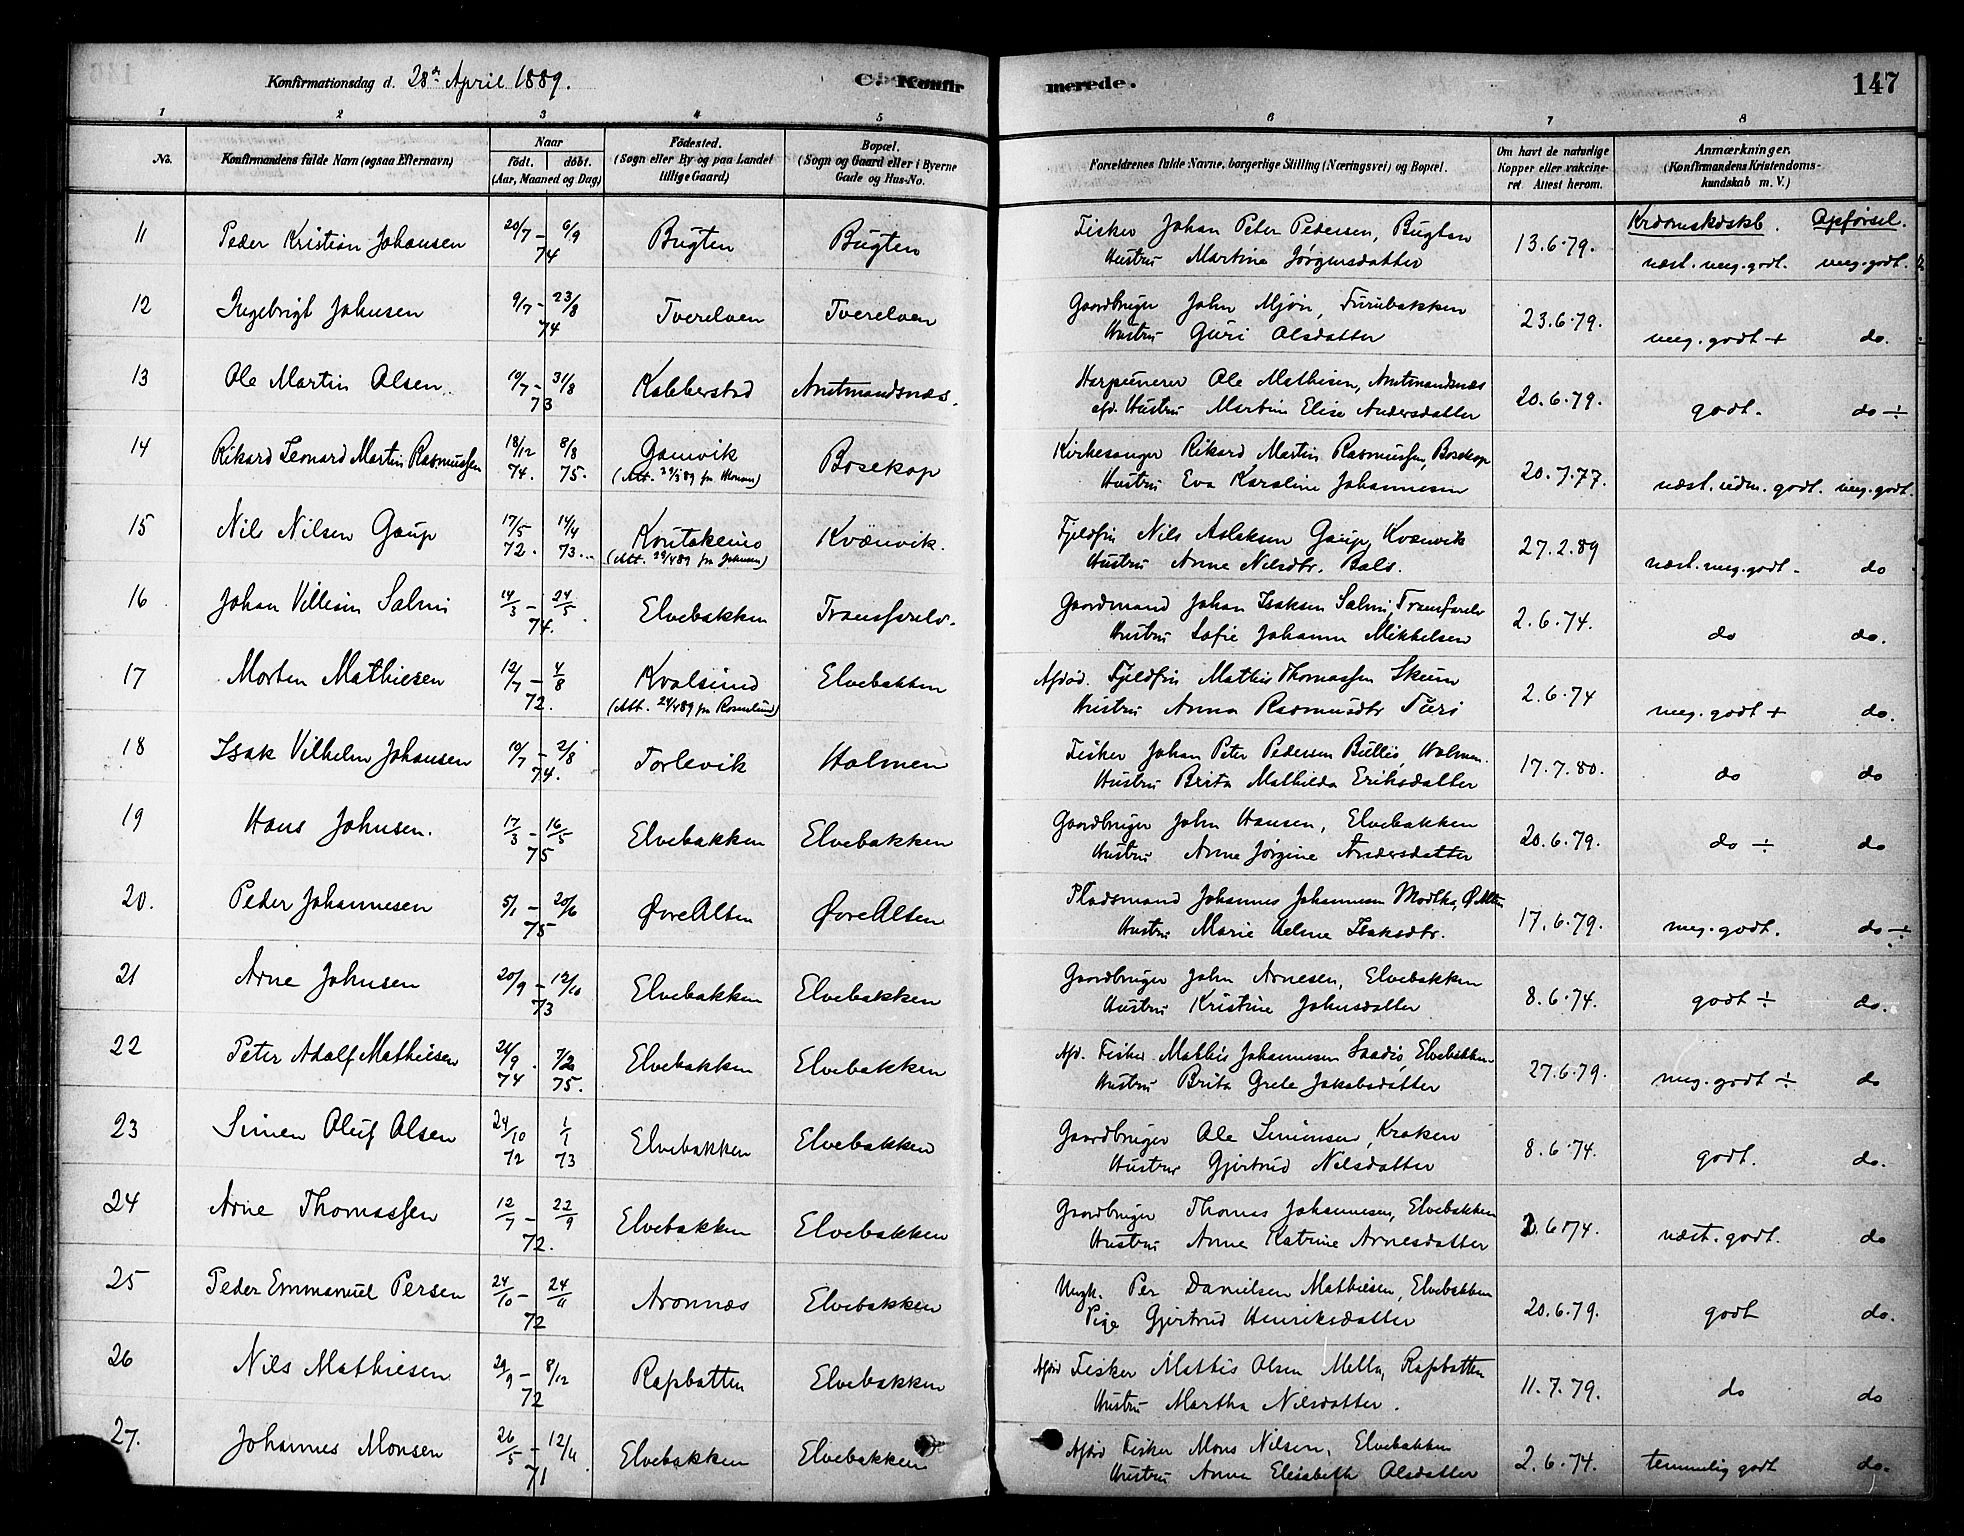 Konfirmationsdag d. 28de April 1889.
C. Konfirmerede.
147
1 2 3 4 5 6 7 8
No. Konfirmandens fulde Navn (ogsaa Efternavn) Naar født. døbt. (Aar, Maaned og Dag) Fødested. (Sogn eller By og paa Landet tillige Gaard) Bopæl. (Sogn og Gaard eller i Byerne Gade og Hus-No. Forældrenes fulde Navne, borgerlige Stilling (Næringsvei) og Bopæl. Om havt de naturlige Kopper eller vakcineret. Attest herom. Anmærkninger. (Konfirmandens Kristendomskundskab m. V.)
Krdomskdskb. Opførsel.
11 Peder Kristian Johansen 20/7 – 6/9 74 Bugten Bugten Fisker Johan Peter Pedersen, Bugten 13.6.79. næst. meg. godt. meg. godt.
Hustru Martine Jørgensdatter
12 Ingebrigt Johnsen 9/7 – 23/8 74 Tverelven Tverelven Gaardbruger John Mjøn, Furubakken 23.6.79. meg. godt + do.
Hustru Guri Olsdatter
13 Ole Martin Olsen 10/7 – 31/8 73 Kabberstad Amtmandsnæs. Harpunerer Ole Mathisen, Amtmandsnæs 20.6.79. godt. do ÷
afd. Hustru Martin Elise Andersdatter
14 Rikard Leonard Martin Rasmussen 18/12 74. 8/8 75. Gamvik Bosekop Kirkesanger Rikard Martin Rasmussen, Bosekop 20.7.77. næst. udm. godt. meg. godt.
Hustru Eva Karoline Johannesen
15 Nils Nilsen Gaup 17/5 72. 14/4 73. Koutokeino Kvænvik. Fjeldfin Nils Aslaksen Gaup, Kvænvik 27.2.89 næst. meg. godt. do
Hustru Anne Nilsdtr. Bals.
16 Johan Villiam Salmi 14/3 – 24/5 74. Elvebakken Transfarelv. Gaardmand Johan Isaksen Salmi, Transfarelv 2.6.74. do do.
Hustru Sofie Johanna Mikkelsen
17 Morten Mathiesen 12/7 – 4/8 72. Kvalsund Elvebakken Afdød. Fjeldfin Mathis Thomassen Skum 2.6.74 meg. godt + do.
Hustru Anna Rasmusdtr Turi
18 Isak Vilhelm Johansen 10/7 – 2/8 74. Torlevik Holmen Fisker Johan Peter Pedersen Bullio, Holmen. 17.7.80. do do
Hustru Brita Mathilda Eriksdatter
19 Hans Johnsen. 17/3 – 16/5 75 Elvebakken Elvebakken Gaardbruger John Hansen, Elvebakken 20.6.79. do ÷ do
Hustru Anne Jørgine Andersdatter
20. Peder Johannesen 5/1 – 20/6 75 Øvre Alten Øvre Alten Pladsmand Johannes Johannesen Modtka, Ø. Alten 17.6.79. meg. godt. do ÷
Hustru Marie Helene Isaksdtr.
21 Arne Johnsen 20/9 – 12/10 73 Elvebakken Elvebakken Gaardbruger John Arnesen, Elvebakken 8.6.74. godt ÷ do.
Hustru Kristine Johnsdatter
22 Peter Adolf Mathiesen 21/9 74 7/2 75. Elvebakken Elvebakken Afd. Fisker Mathis Johannesen Saadio, Elvebakken. 27.6.79. meg. godt ÷ do
Hustru Brita Grete Jakobsdatter
23 Simen Oluf Olsen 24/10 72 1/1 73 Elvebakken Elvebakken Gaardbruger Ole Simonsen, Kroken 8.6.74. godt. do.
Hustru Gjertrud Nilsdatter
24 Arne Thomassen 12/7 – 22/9 72. Elvebakken Elvebakken Gaardbruger Thomas Johannesen, Elvebakken 2.6.74. næst. godt. do
Hustru Anne Katrine Arnesdatter
25 Peder Emmanuel Persen 24/10 – 24/11 72 Aronnæs Elvebakken Ungk. Per Danielsen Mathiesen, Elvebakken 20.6.79. godt do.
Pige Gjertrud Henriksdatter
26 Nils Mathiesen 29/9 – 8/12 72 Rafsbotten Elvebakken Afdød Fisker Mathis Olsen Mella, Rafsbotten 11.7.79. do do
Hustru Martha Nilsdatter.
27. Johannes Monsen 26/5 – 12/11 71 Elvebakken Elvebakken Afdød Fisker Mons Nilsen, Elvebakken 2.6.74. temmelig godt do.
Hustru Anna Elisabeth Olsdatter